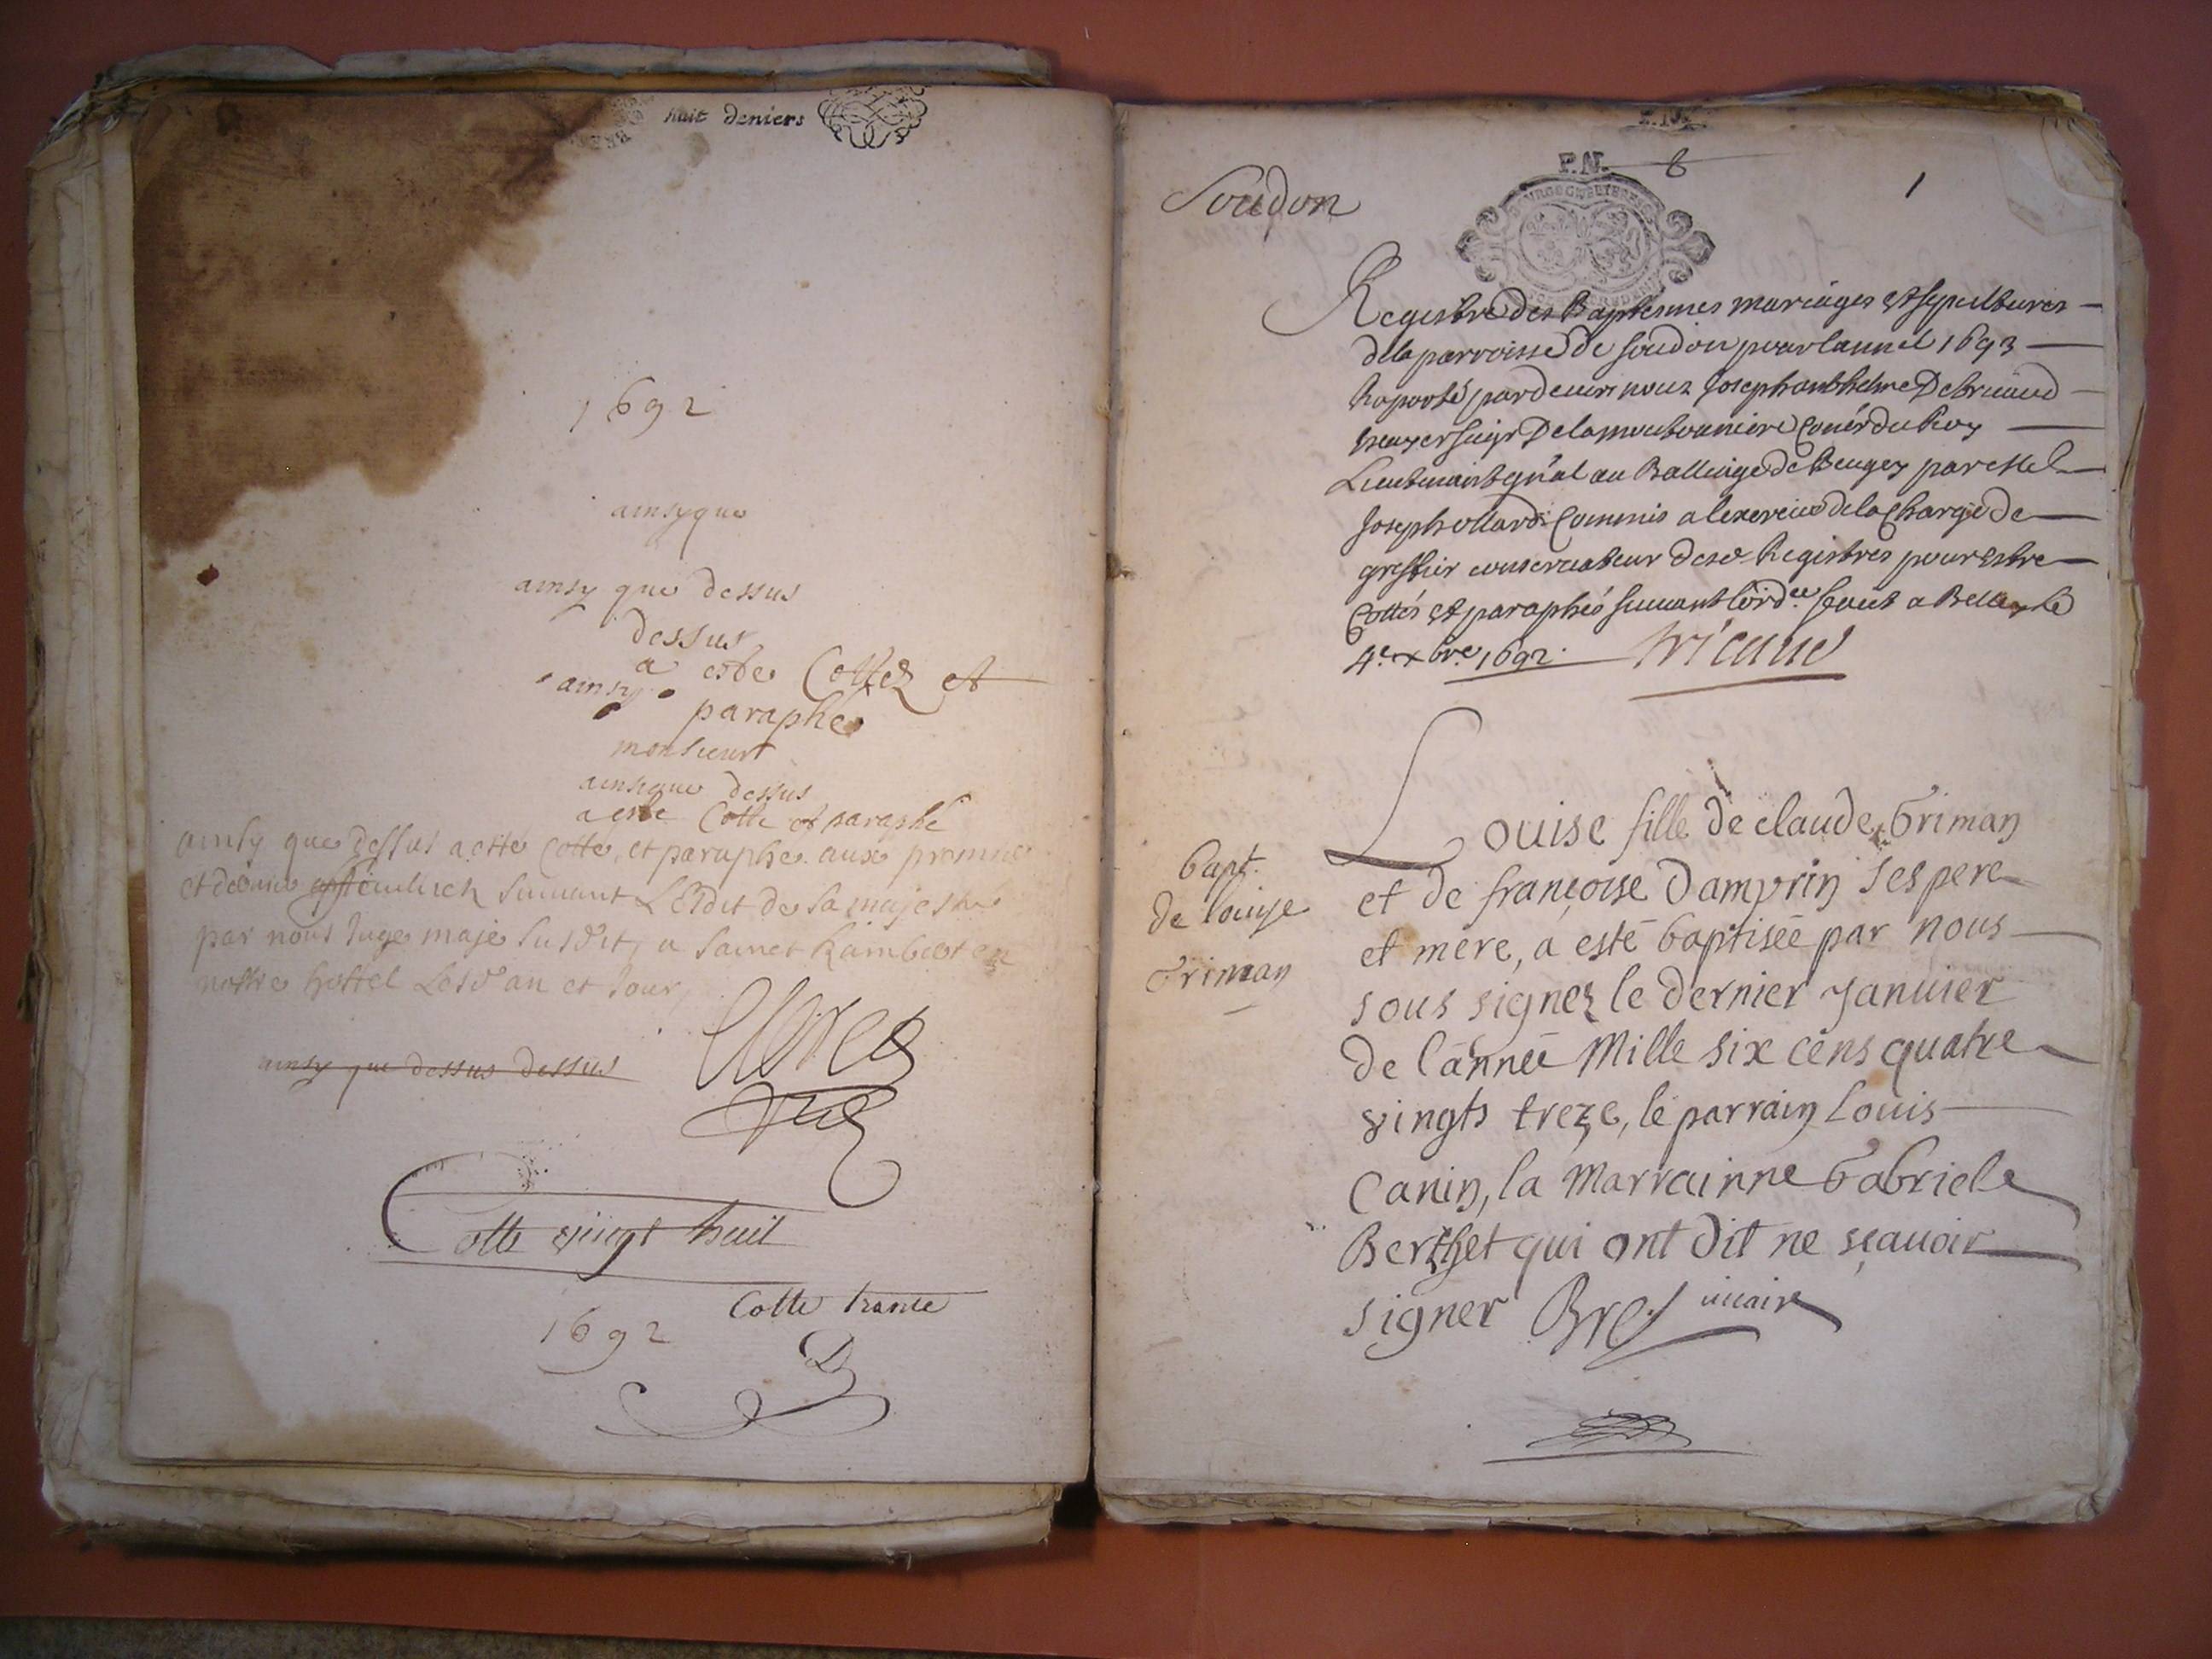 huit deniers
1692
ainsyque
ainsy que dessus
dessus
a este Cottez et
ainsy
paraphe
monsieurt
ainsique dessus
a este Cotte et paraphé
ainsy que dessus a esté cotté, et paraphe aux premier
et dernier suivant LEdit de sa majesté
par nous Juge maje susdit, a sainct Rambert en
nostre hostel Lesd an et Jour,
ainsy que dessus dessus
Cotte vingt huit
Cotte trante
1692
P.N. 6
1
Soudon
Registre des Baptesmes mariages et sepultures
de la parroisse de Soudon pour lannée 1693
Raporté pardevers nous Joseph anthelme De
Lieutenant gñal au Balliage de Beugey par
Joseph Commis a lexercice de la Charge de
greffier conservateur desd Registres pour Estre
Cottés et paraphés suivant lord.ce faict a Belley le
4.e xbre. 1692. tricaud
Bapt.
de louise
Griman
Louise fille de claude Griman
et de françoise Damprin ses pere
et mere, a esté baptisée par nous
sous signez le dernier Januier
de l'année Mille six cens quatre
vingts treze, le parrain Louis
Canin, la Marrainne Gabriele
Berthet qui ont dit ne sçauoir
signer uicaire